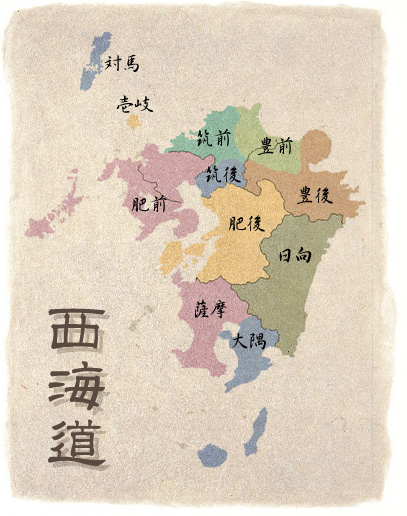 対馬
壱岐
筑前
豊前
筑後
豊後
肥前
肥後
日向
薩摩
大隅
西海道